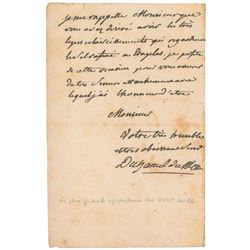 Je me rappelle Monsieur que
vous avez désiré avoir les très
legers eclaircissements qui regardent
les
de cette occasion pour vous assurer
du sincere attachement avec
lequel j'ai l'honneur d'etre
Monsieur
Votre très humble
et tres obeissant serv
Duhamel du Monceau
le plus grand agronome du XVIIIe siècle